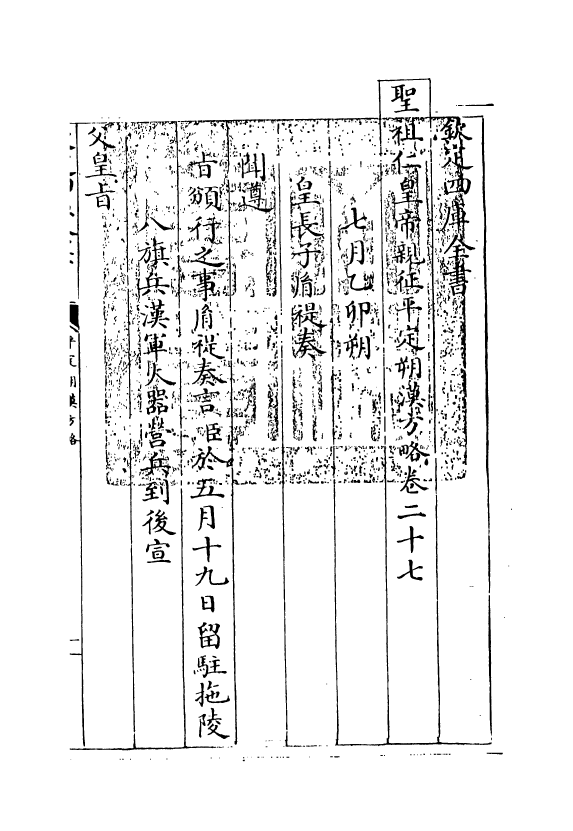 欽定四庫全書
聖祖仁皇帝親征平定朔漠方略卷二十七
七月乙卯朔
皇長子胤禔奏
聞遵
旨頒行之事胤禔奏言臣於五月十九日留駐拖陵
八旗兵漢軍火器營兵到後宣
父皇旨
平定朔漠方略
一